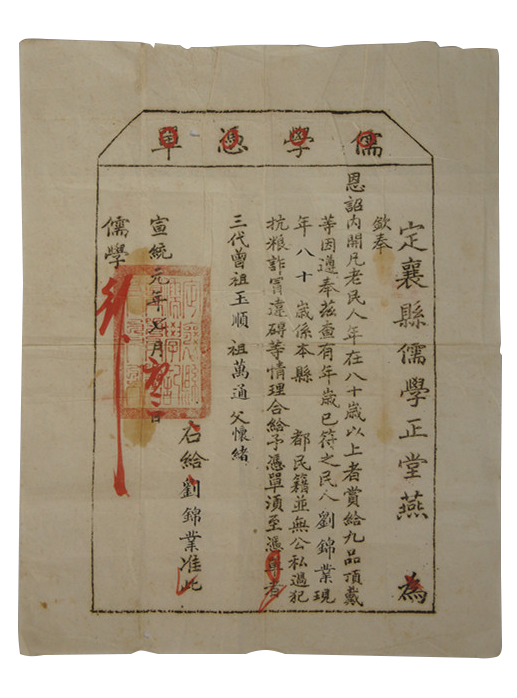 儒學憑單
定襄縣儒學正堂燕 為
欽奉
恩詔內開凡老民人年在八十歲以上者賞給九品頂戴
等因遵奉茲查有年歲已符之民人劉錦業現
年八十 歲係本縣 都民籍並無公私過犯
抗粮詐冒違碍等情理合給予憑單須至憑單者
三代曾祖玉順 祖萬通 父懷緒
右給劉錦業准此
宣統元年 月 日
儒學